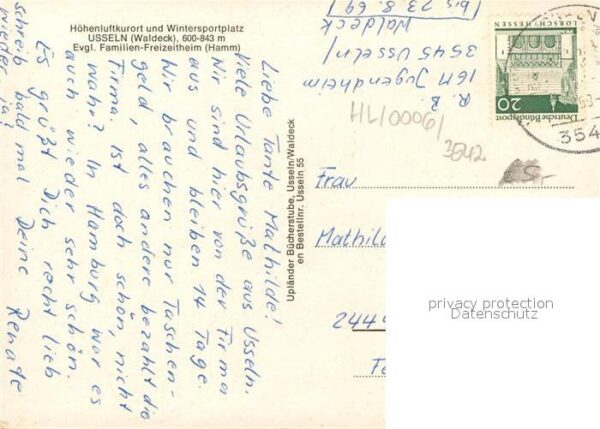 Höhenluftkurort und Wintersportplatz
USSELN (Waldeck), 600-843 m
Evgl. Familien-Freizeitheim (Hamm)
Liebe Tante Mathilde!
Viele Urlaubsgrüße aus Usseln.
Wir sind hier von der Firma
aus und bleiben 14 Tage.
Wir brauchen nur Taschen-
geld, alles andere bezahlt die
Firma. Ist doch schön, nicht
wahr? In Hamburg war es
auch wieder sehr schön.
Es grüßt Dich recht lieb
Deine Renate
schreib bald mal
wieder ja!
Upländer Bücherstube, Usseln/Waldeck
en Bestellnr. Usseln 55
R. B.
16 Jugendheim
3545 Usseln/
Waldeck
(bis 23.8.69)
LORSCH/HESSEN
20
Deutsche Bundespost
354
HL/0006/
3542
Frau
Mathild
244
Fe
privacy protection
Datenschutz